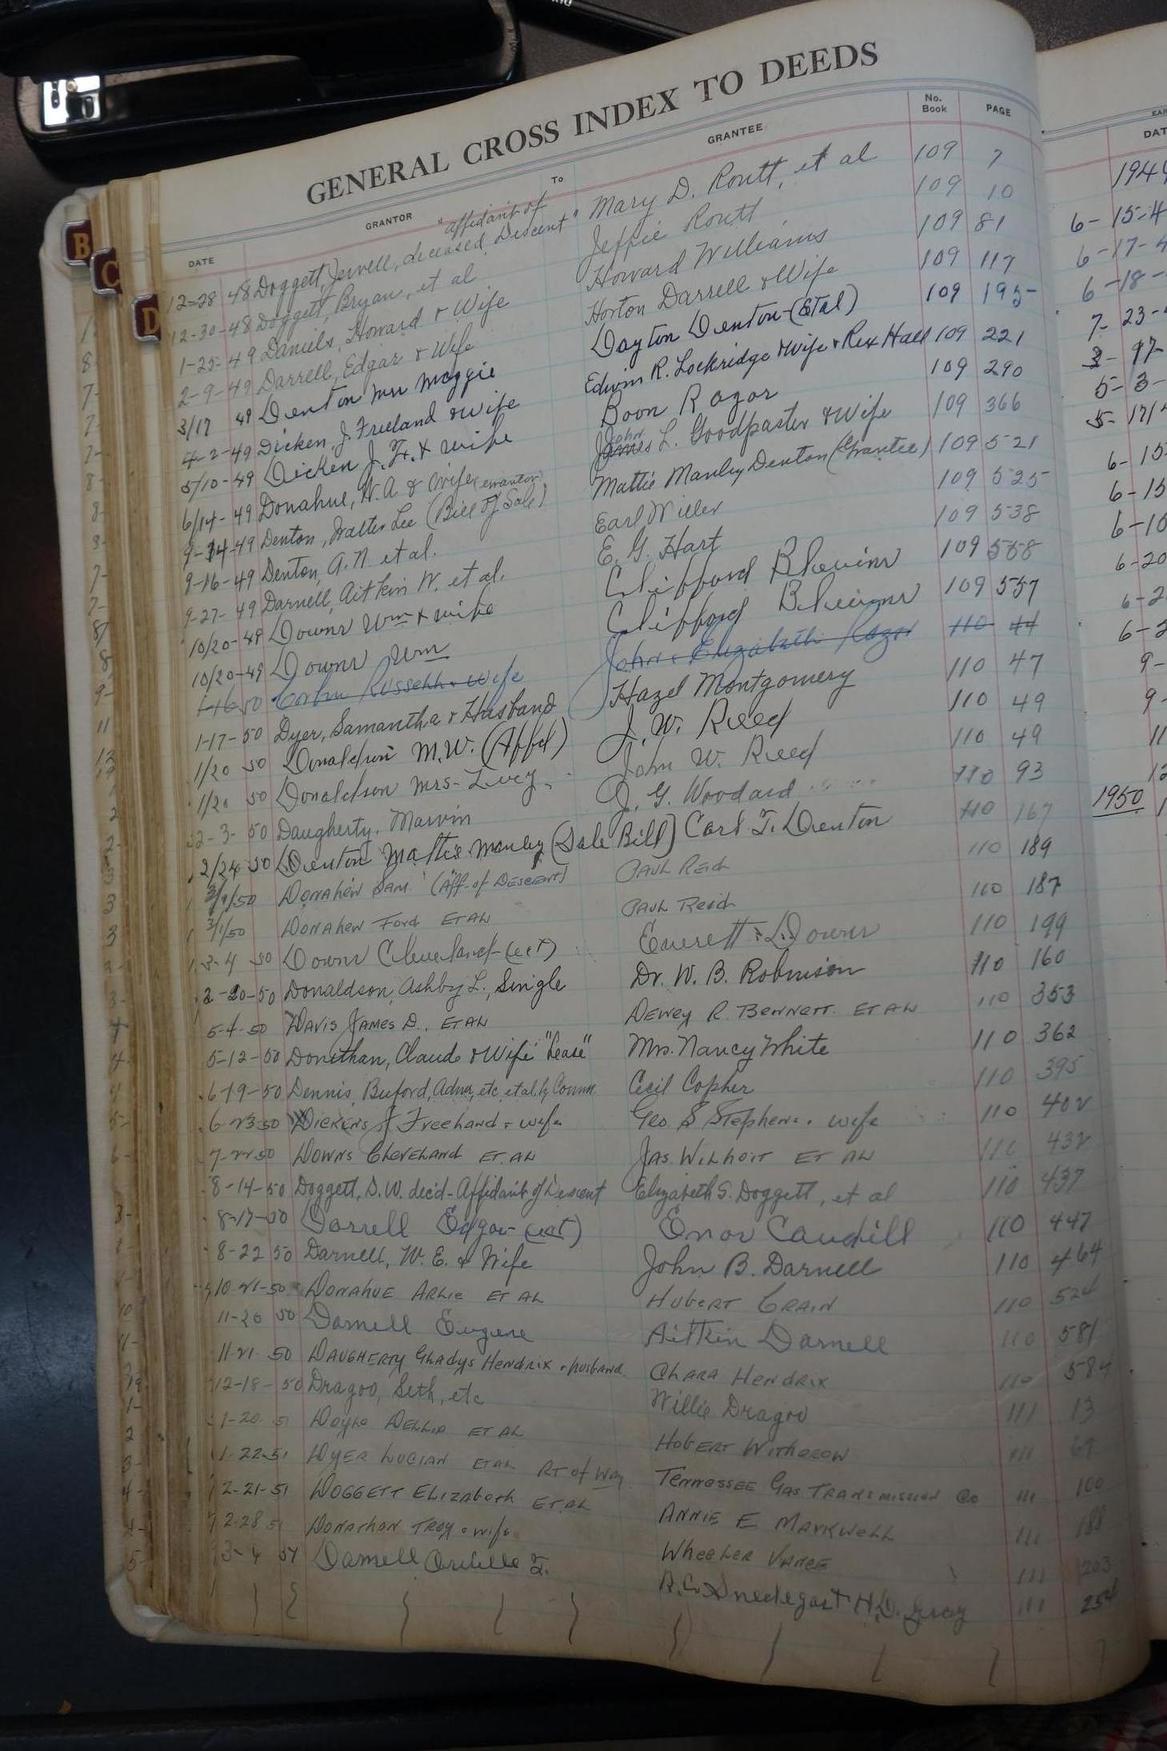 GENERAL CROSS INDEX TO DEEDS
DATE GRANTOR To GRANTEE No. Book PAGE
12-28 48 Doggett, Jewell, deceased "affidavit of Descent" Mary D. Routt, et al 109 7
12-30-48 Doggett, Bryan, et al Jeffie Routt 109 10
1-25-49 Daniels, Howard & Wife Howard Williams 109 81
2-9-49 Darrell, Edgar & Wife Horton Darrell & Wife 109 117
3/17 49 Denton Mrs Maggie Dayton Denton (Etal) 109 195
4-2-49 Dicken, J. Freeland & Wife Edwin R. Lockridge & Wife & Rex Hall 109 221
5/10-49 Dicken J. F. & wife Boon Rogor 109 290
6/14-49 Donahue, W. A & Wife John L. Goodpaster & Wife 109 366
9-14-49 Denton, Walter Lee (Bill of Sale) Mattie Manley Denton (Grantee) 109 521
9-16-49 Denton, A. N. et al. Earl Willer 109 525
9-27-49 Darnell, Aitkin W. et al. E. G. Hart 109 538
10/20-49 Downs Wm & wife Clifford Blevins 109 558
10/20-49 Downs Wm Clifford Blevins 109 557
1-16 50 Russell & Wife John & Elizabeth 110 44
1-17-50 Dyer, Samantha & Husband Hazel Montgomery 110 47
1/20 50 Donaldson M. W. (Affd) J. W. Reed 110 49
1/20 50 Donaldson Mrs- Lucy John W. Reed 110 49
2-3-50 Daugherty, Marvin J. G. Woodard 110 93
2/24 50 Denton Mattie Manley (Sale Bill) Carl T. Denton 110 167
50 Donahew Sam (Aff. of Descent) Paul Reid 110 189
3/1/50 Donahew Ford Et al Paul Reid 110 187
3-4 50 Downs Cleveland Everett Downs 110 199
2-20-50 Donaldson, Ashby L., Single Dr. W. B. Robinson 110 160
5-4-50 Davis James D., Et al Dewey R. Bennett. Et al 110 353
5-12-50 Donathan, Claude & Wife "Lease" Mrs. Nancy White 110 362
6-19-50 Dennis, Buford, Adm, etc, et al, by Comm. Cecil Copher 110 395
6-23-50 Dickens J Freehand & wife Geo S Stephens & wife 110 402
7-22-50 Downs Cleveland Et. al Jas. Wilhoit Et al 110 432
8-14-50 Doggett, D. W. dec'd - Affidavit of Descent Elizabeth S. Doggett, et al 110 437
8-17-50 Darrell Edgar Enor Caudill 110 447
8-22 50 Darnell, W. E. & Wife John B. Darnell 110 464
10-21-50 Donahue Arlie Et al Hubert Crain 110 524
11-20 50 Darnell Eugene Aitkin Darnell 110 581
11-21 50 Daugherty Gladys Hendrix & husband Clara Hendrix 110 584
12-18-50 Dragoo, Seth, etc Willie Dragoo 111 13
1-20 51 Et al Hobert Withrow 111
1-22-51 Dyer Lucian Et al Rt of Way Tennessee Gas Transmission Co 111 100
2-21-51 Doggett Elizabeth Et al Annie E Markwell 111 188
2-28 51 Donathan Troy & wife Wheeler Vance 111 203
3-4 51 Darnell Orville T. 111
B
C
D
DATE
1949
6-15-4
6-17-4
6-18-
7-23-
5-3-
6-15
6-15
6-10
6-20
6-2
6-2
9-
9-
1950